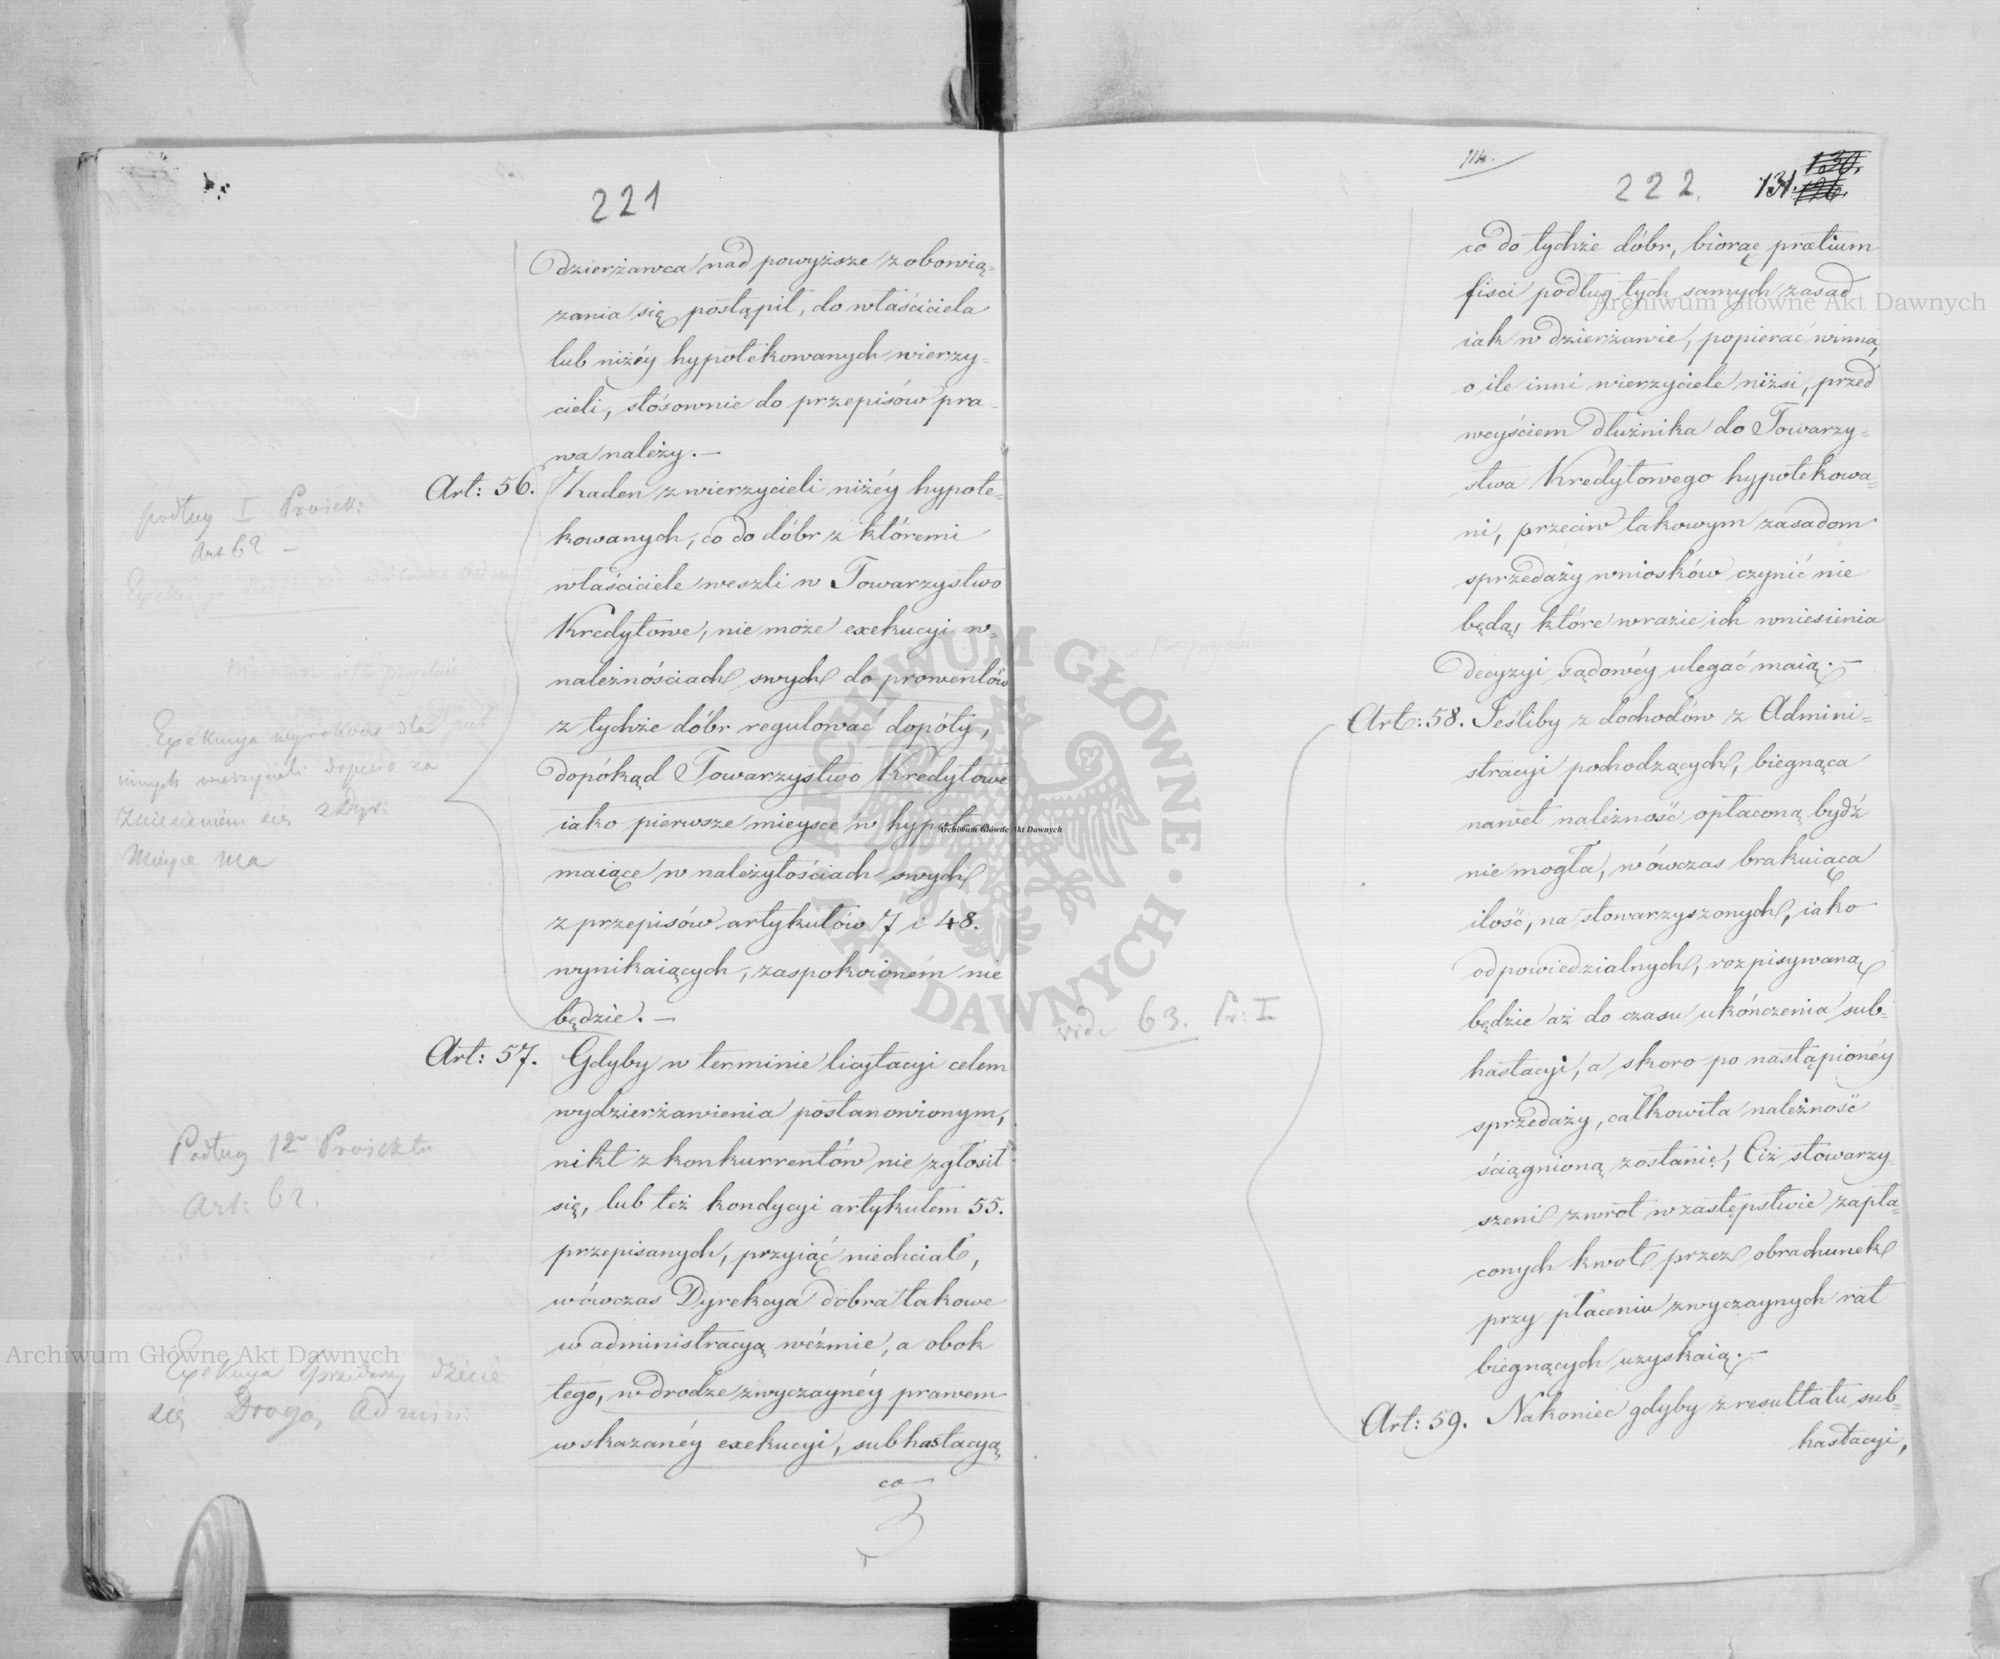 221
dzierżawca nad powyższe zobowią=
zania się postąpił, do właściciela
lub niżéy hypotekowanych wierzy=
cieli, stósownie do przepisów pra=
wa należy. —
Art: 56. Żaden z wierzycieli niżéy hypote=
kowanych, co do dóbr z któremi
właściciele weszli w Towarzystwo
Kredytowe, nie może exekucyi w=
należnościach swych do prowentów
z tychże dóbr regulować dopóty,
dopókąd Towarzystwo Kredytowe
iako pierwsze mieysce w hypotece
maiące w należytościach swych
z przepisów artykułów 7 i 48.
wynikaiących, zaspokoioném nie
będzie. —
Art: 57. Gdyby w terminie licytacyi celem
wydzierżawienia postanowionym,
nikt z konkurrentów nie zgłosił
się, lub też kondycyi artykułem 55.
przepisanych, przyiąć niechciał,
wówczas Dyrekcya dobra takowe
w administracyą weźmie, a obok
tego, w drodze zwyczaynéy prawem
wskazanéy exekucyi, subhastacyą
co
podług I Proiek:
Art 62 —
Exekucya
Exekucya wyroków dla
innych wierzycieli dopiero za
Zniesieniem się z Dyr:
Mieysce ma
Podług 1go Proiektu
Art: 62.
Exekucya Sprzedaży dzieie
się Drogą Admin:
114.
222. 131. 130.
126.
co do tychże dóbr, biorąc pretium
fisci podług tych samych zasad
iak w dzierżawie, popierać winna,
o ile inni wierzyciele niżsi, przed
weyściem dłużnika do Towarzy=
stwa Kredytowego hypotekowa=
ni, przeciw takowym zasadom
sprzedaży wniosków czynić nie
będą, które w razie ich wniesienia
decyzyi sądowéy ulegać maią. —
Art: 58. Jeśliby z dochodów z Admini=
stracyi pochodzących, biegnąca
nawet należność opłaconą bydź
nie mogła, wówczas brakuiąca
ilość, na stowarzyszonych, iako
odpowiedzialnych, rozpisywaną
będzie aż do czasu ukończenia sub=
hastacyi, a skoro po nastąpionéy
sprzedaży, całkowita należność
ściągnioną zostanie, Ciż stowarzy=
szeni zwrot w zastępstwie zapła=
conych kwot przez obrachunek
przy płaceniu zwyczaynych rat
biegnących uzyskaią. —
Art: 59. Nakoniec gdyby z resultatu sub=
hastacyi,
vide 63. Pr: I
Archiwum Główne Akt Dawnych
Archiwum Główne Akt Dawnych
Archiwum Główne Akt Dawnych
ARCHIWUM GŁÓWNE • AKT DAWNYCH •